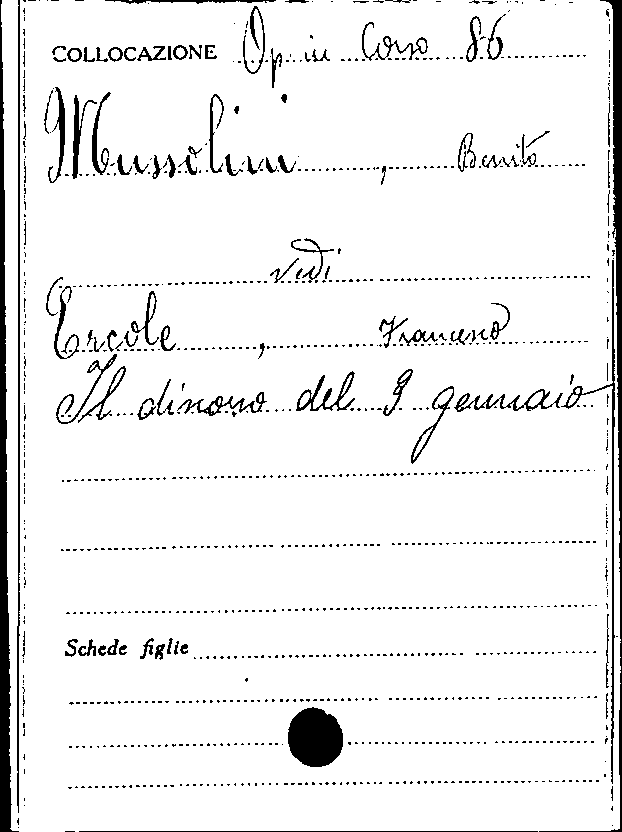 COLLOCAZIONE Op. in Corso 86
Mussolini, Benito
vedi
Ercole, Francesco
Il discorso del 3 gennaio
Schede figlie